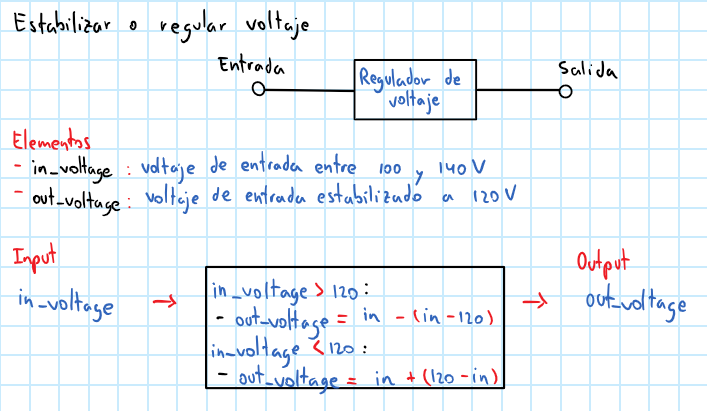 Estabilizar o regular voltaje
Entrada
Regulador de
voltaje
Salida
Elementos
- in_voltage : voltaje de entrada entre 100 y 140 V
- out_voltage : voltaje de entrada estabilizado a 120 V
Input
in_voltage →
in_voltage > 120 :
- out_voltage = in - (in - 120)
in_voltage < 120 :
- out_voltage = in + (120 - in)
Output
→ out_voltage